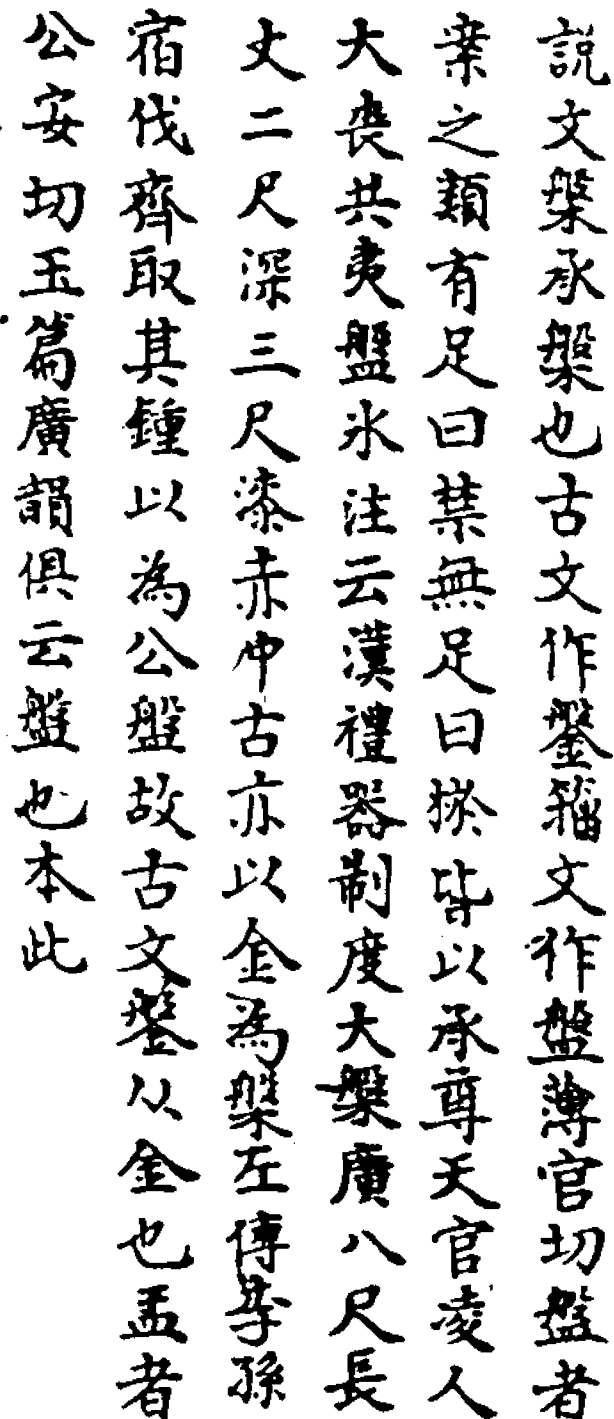 説文槃承槃也古文作鎜籒文作盤薄官切盤者
案之類有足曰禁無足曰棜皆以承尊天官凌人
大喪共夷盤氷注云漢禮器制度大槃廣八尺長
丈二尺深三尺漆赤中古亦以金為槃左傳季孫
宿伐齊取其鍾以為公盤故古文鎜从金也盂者
公安切玉篇廣韻俱云盤也本此